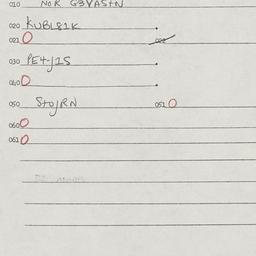 010 NOR G3VASTN
020 KUBL81K
021 O 022
030 PE4J1S
040 O
050 STOJRN 051 O
060 O
061 O